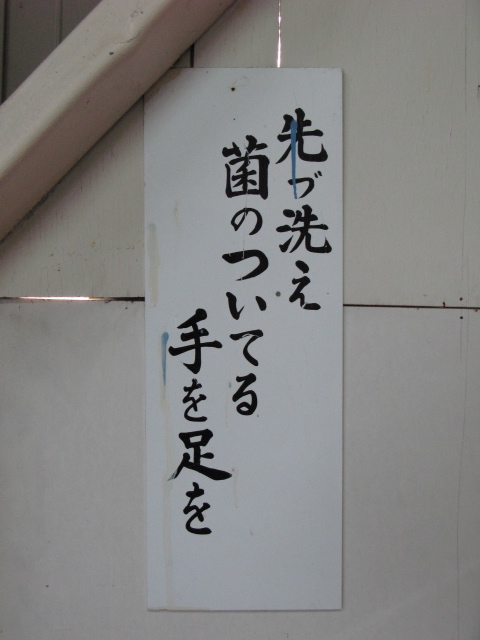 先づ洗え
菌のついてる
手を足を